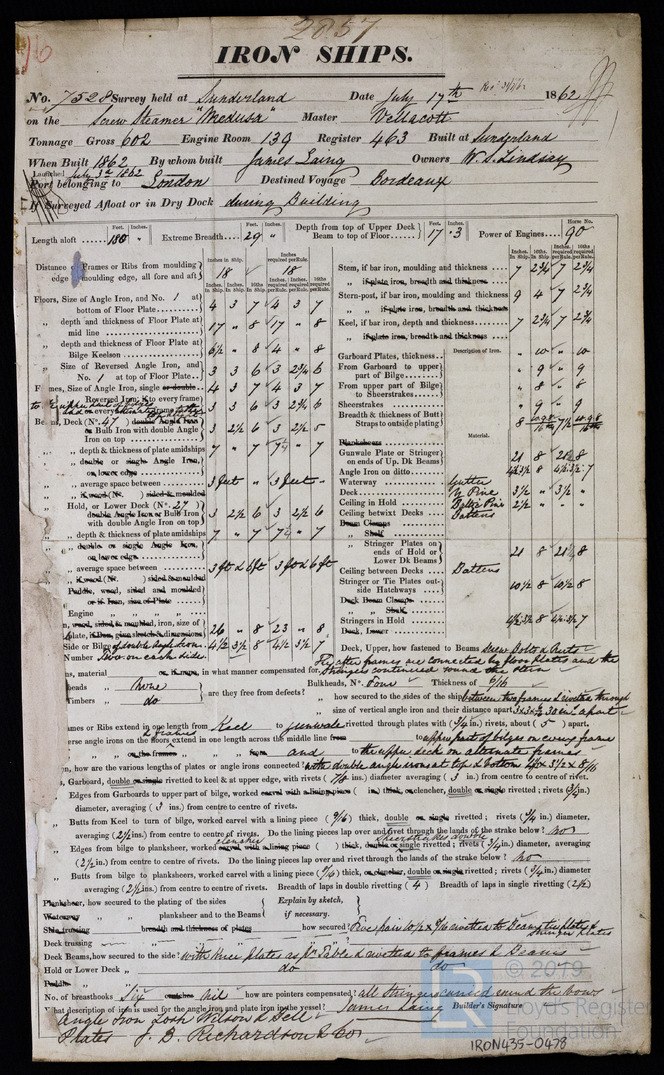 2057
IRON SHIPS.
No. 7528 Survey held at Sunderland Date July 17th 1862
on the Screw Steamer "Medusa" Master Vellacott
Tonnage Gross 602 Engine Room 139 Register 463 Built at Sunderland
When Built 1862 By whom built James Laing Owners W. S. Lindsay
Launched July 3rd 1862
Port belonging to London Destined Voyage Bordeaux
If Surveyed Afloat or in Dry Dock during Building
Length aloft 180 Extreme Breadth 29 Depth from top of Upper Deck Beam to top of Floor 17 3 Power of Engines 90
Distance Frames or Ribs from moulding edge moulding edge, all fore and aft 18 18
Floors, Size of Angle Iron, and No. 1 at bottom of Floor Plate 4 3 7 4 3 7
" depth and thickness of Floor Plate at mid line 17 " 8 17 " 8
" depth and thickness of Floor Plate at Bilge Keelson 6½ " 8 4 " 8
" Size of Reversed Angle Iron, and No. 1 at top of Floor Plate 3 3 6 3 2¾ 6
Frames, Size of Angle Iron, single or double 4 3 7 4 3 7
Beams, Deck (No. 47) double Angle Iron or Bulb Iron with double Angle Iron on top 3 2½ 6 3 2½ 5
" depth & thickness of plate amidships 7 " 7 7¼ " 7
" double or single Angle Iron, on lower edge
" average space between 3 feet 3 feet
" if wood (No. ) sided & moulded
Hold, or Lower Deck (No. 27) double Angle Iron or Bulb Iron with double Angle Iron on top 3 2½ 6 3 2½ 6
" depth & thickness of plate amidships 7 " 7 7¼ " 7
" double or single Angle Iron, on lower edge
" average space between 3 ft & 6 ft 3 ft & 6 ft
" if wood (No. ) sided & moulded
Paddle, wood, sided and moulded or if Iron, size of Plate
Engine " " " "
Side or Bilge of double Angle Iron 4½ 3½ 8 4½ 3½ 7
Number Two on each side
Stem, if bar iron, moulding and thickness 7 2¾ 7 2¾
" if plate iron, breadth and thickness
Stern-post, if bar iron, moulding and thickness 9 4 7 2¾
" " if plate iron, breadth and thickness
Keel, if bar iron, depth and thickness 7 2¾ 7 2¾
" if plate iron, breadth and thickness
Description of Iron.
Garboard Plates, thickness " 10 " 10
From Garboard to upper part of Bilge " 9 " 9
From upper part of Bilge to Sheerstrakes " 8 " 8
Sheerstrakes " 9 " 9
Breadth & thickness of Butt Straps to outside plating
Material.
Planksheers
Gunwale Plate or Stringer on ends of Up. Dk Beams
Angle Iron on ditto
Waterway Gutter
Deck Y. Pine 3½ " 3½ "
Ceiling in Hold Baltic Pine 2½ " " "
Ceiling betwixt Decks Battens
Beam Clamps
" Shelf
" Stringer Plates on ends of Hold or Lower Dk Beams
Ceiling between Decks Battens
Stringer or Tie Plates outside Hatchways 10½ 8 10½ 8
Deck Beam Clamps
" " Shelf
Stringers in Hold
Deck, Lower
Deck, Upper, how fastened to Beams Screw Bolts & Nuts
in what manner compensated for. The after frames are connected by floor plates and the Stringers continued round the stern
Bulkheads, No. Four Thickness of 5/16
none are they free from defects?
Timbers do
how secured to the sides of the ship between two frames & riveted through
size of vertical angle iron and their distance apart 3x3x5/16 30 in. apart
Frames or Ribs extend in one length from Keel to gunwale rivetted through plates with (¾ in.) rivets, about (5) apart,
Reverse angle irons on the floors & frames extend in length across the middle line from to upper part of bilges on every frame
" " on the frames " " from and to the upper deck on alternate frames
how are the various lengths of plates or angle irons connected? with double angle irons at top & bottom 4½ x 3½ x 8/16
Garboard, double or single rivetted to keel & at upper edge, with rivets (7/8 in.) diameter averaging (3 in.) from centre to centre of rivets.
Edges from Garboards to upper part of bilge, worked carvel with a lining piece ( in.) thick, or clencher, double or single rivetted; rivets (¾ in.)
diameter, averaging (3 ins.) from centre to centre of rivets.
" Butts from Keel to turn of bilge, worked carvel with a lining piece (9/16) thick, double or single rivetted; rivets (¾ in.) diameter,
averaging (2½ ins.) from centre to centre of rivets. Do the lining pieces lap over and rivet through the lands of the strake below? no
" Edges from bilge to planksheer, worked clencher carvel with a lining piece ( ) thick, double or single rivetted; rivets (¾ in.) diameter, averaging
Sheerstrakes double
(2½ in.) from centre to centre of rivets. Do the lining pieces lap over and rivet through the lands of the strake below? no
" Butts from bilge to planksheer, worked carvel with a lining piece (9/16) thick, or clencher, double or single rivetted; rivets (¾ in.) diameter
averaging (2½ ins.) from centre to centre of rivets. Breadth of laps in double rivetting (4) Breadth of laps in single rivetting (2½)
Planksheer, how secured to the plating of the sides Explain by sketch,
Waterway " " planksheer and to the Beams if necessary.
Side trussing breadth and thickness of plates how secured? Five pair 10½ x 8/16 riveted to Beams tie plates & stringer plates
Deck trussing " "
Deck Beams, how secured to the side? with Knee Plates as pr Table & riveted to frames & Beams
Hold or Lower Deck " do do
Paddle "
No. of breasthooks Six crutches nil how are pointers compensated? all Stringers carried round the bows
What description of iron is used for the angle iron and plate iron in the vessel? James Laing Builder's Signature
Angle Iron Losh Wilson & Bell
Plates J. B. Richardson & Co
© 2019
Lloyd's Register
Foundation
IRON435-0478